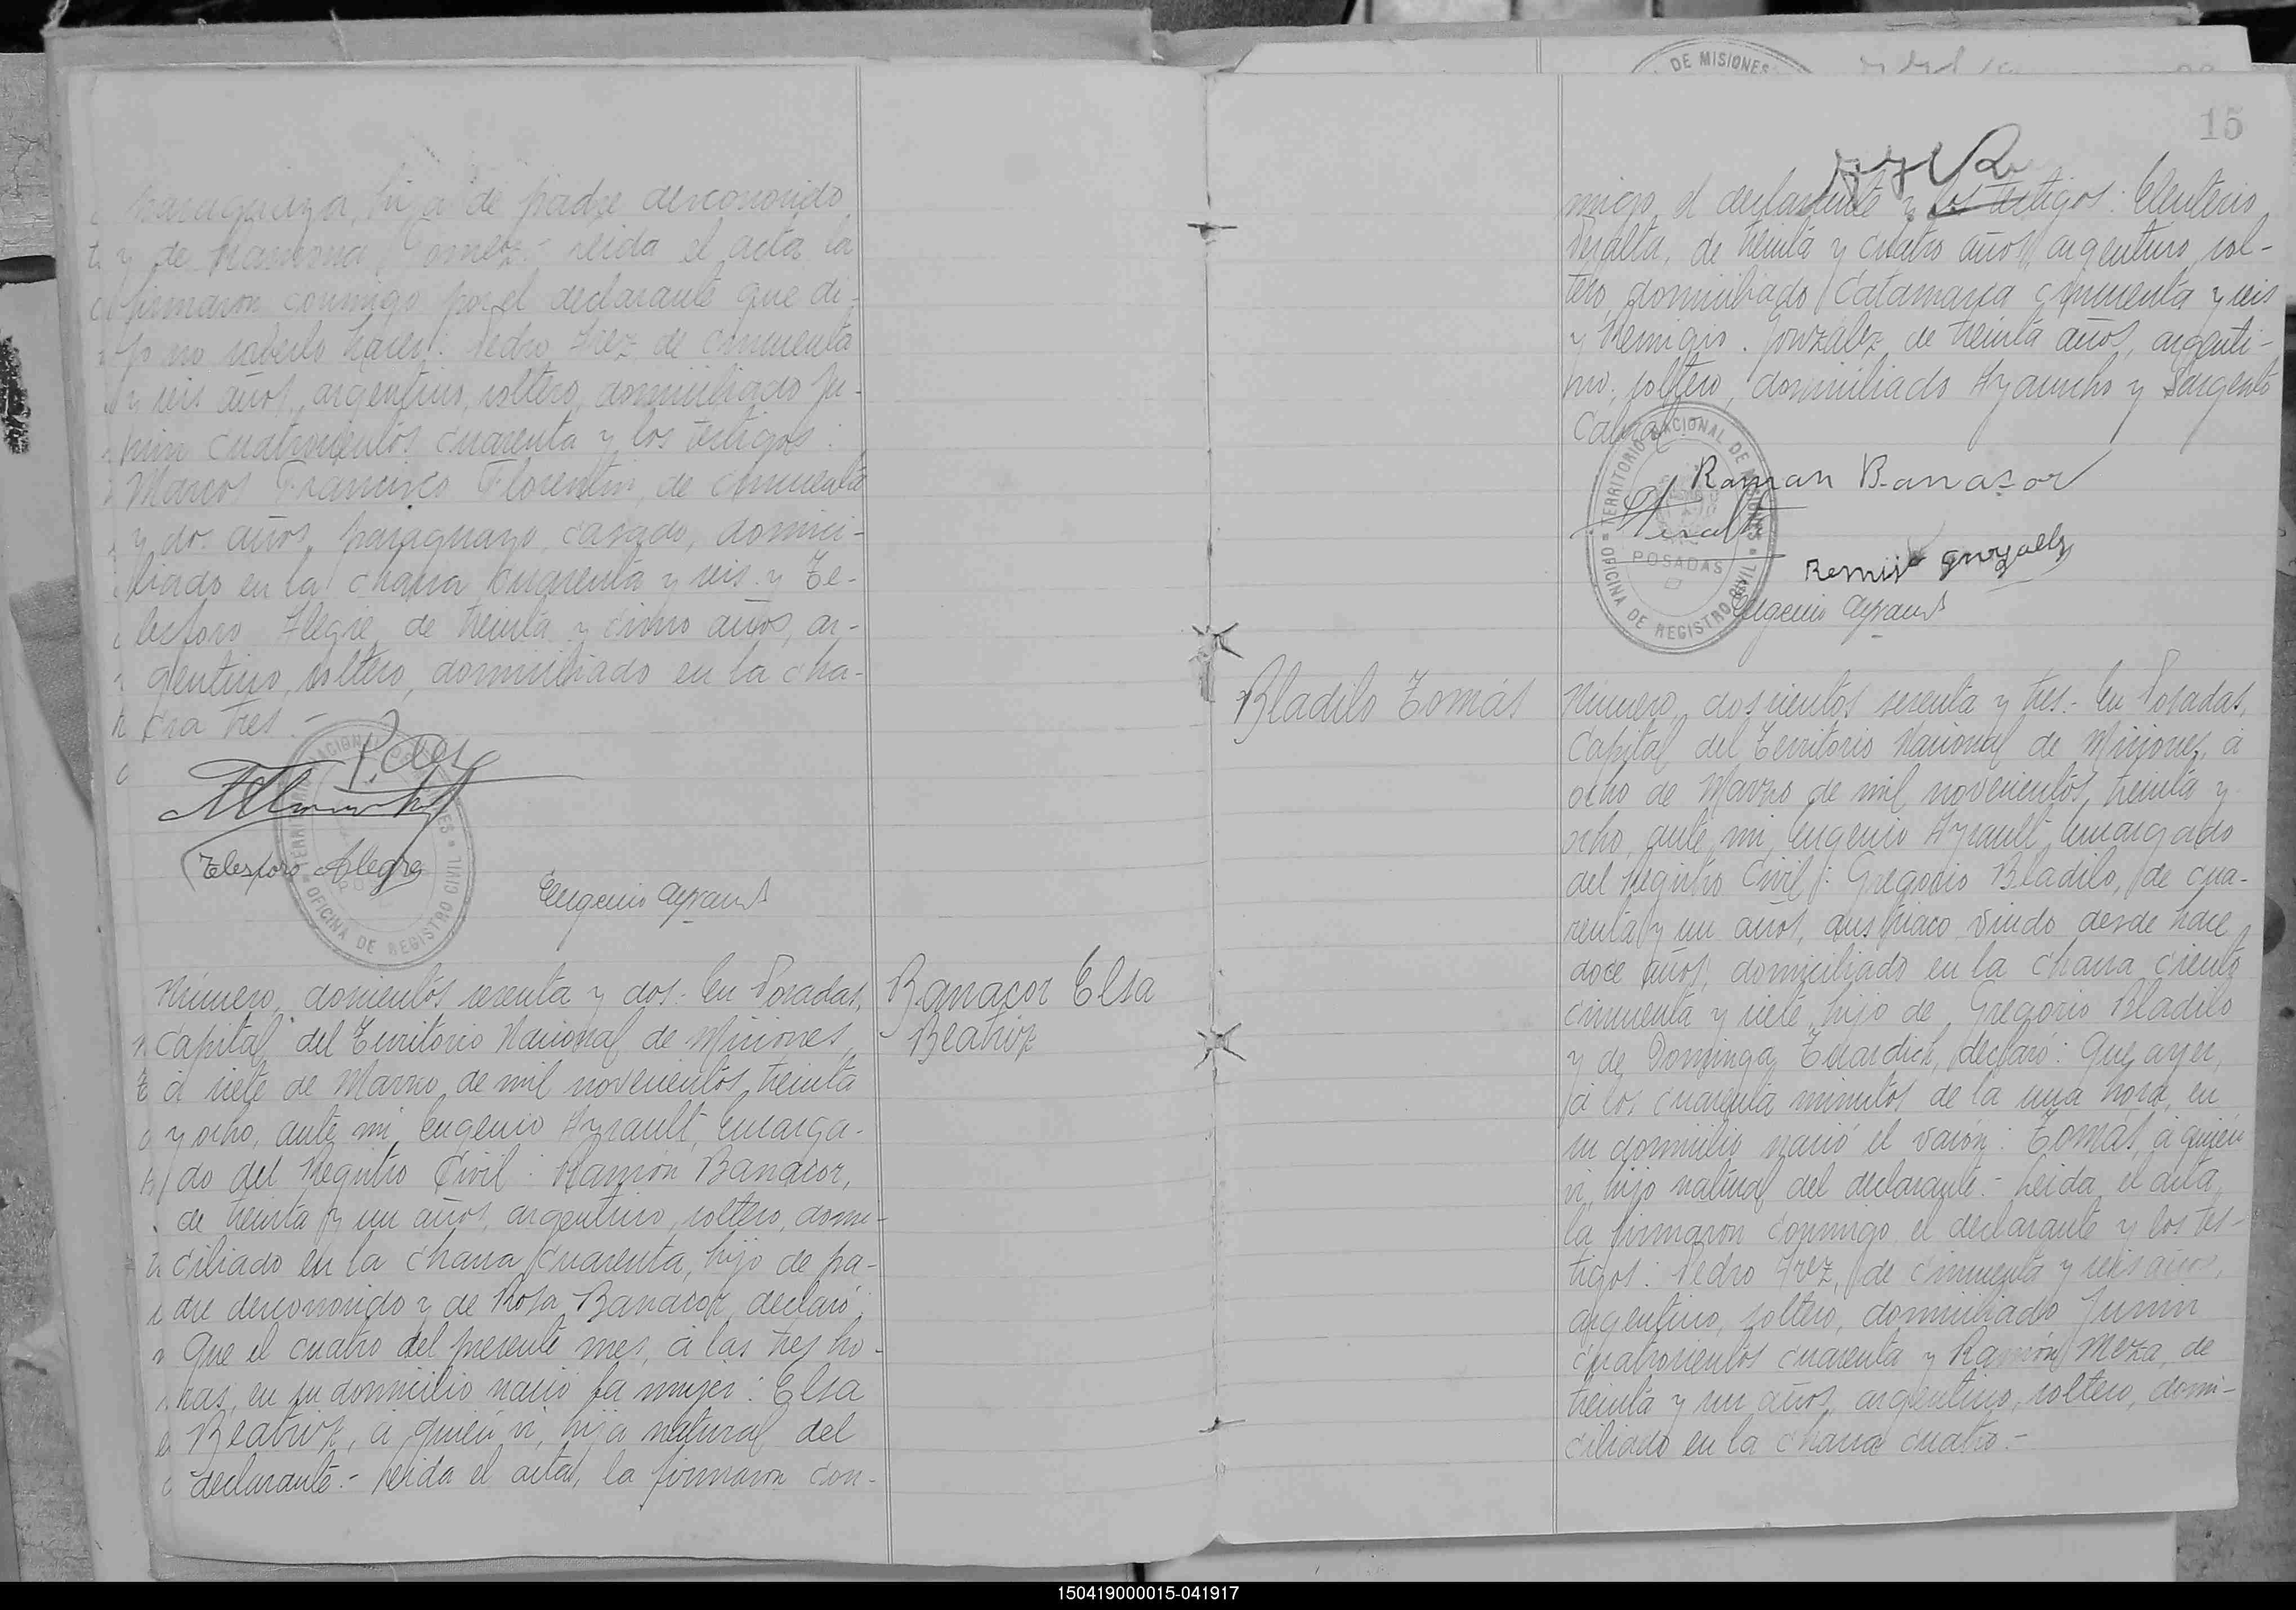 paraguaya, hija de padre desconocido
y de Ramona Gomez.- Leida el acta la
firmaron conmigo por el declarante que di-
jo no saberlo hacer: Pedro Arez de cincuenta
y seis años, argentino, soltero, domiciliado Ju-
nin cuatrocientos cuarenta y los testigos:
Marcos Francisco Florentin, de cincuenta
y dos años, paraguayo, casado, domici-
liado en la chacra cuarenta y seis y Te-
lesforo Alegre de treinta y cinco años, ar-
gentino, soltero, domiciliado en la cha-
cra tres.-
Telesforo Alegre
Eugenio Ayrault
Número doscientos sesenta y dos.- En Posadas,
Capital del Territorio Nacional de Misiones,
á siete de Marzo de mil novecientos treinta
y ocho, ante mi, Eugenio Ayrault, Encarga-
do del Registro Civil: Ramón Banacor,
de treinta y un años, argentino, soltero, domi-
ciliado en la chacra cuarenta, hijo de pa-
dre desconocido y de Rosa Banacor, declaró:
Que el cuatro del presente mes, á las tres ho-
ras, en su domicilio nació la mujer: Elsa
Beatriz, á quien vi, hija natural del
declarante.- Leida el acta, la firmaron con-
Banacor Elsa
Beatriz
DE MISIONES
15
migo, el declarante y los testigos: Eleuterio
Peralta, de treinta y cuatro años, argentino, sol-
tero, domiciliado Catamarca cincuenta y seis
y Remigio González de treinta años, argenti-
no, soltero, domiciliado Ayacucho y Sargento
Cabral
TERRITORIO NACIONAL DE MISIONES
POSADAS
OFICINA DE REGISTRO CIVIL
Ramon Banacor
Peralta
Remijio Gonzalez
Eugenio Ayrault
Bladilo Tomás
Número doscientos sesenta y tres.- En Posadas,
Capital del Territorio Nacional de Misiones, á
ocho de Marzo de mil novecientos treinta y
ocho, ante mi, Eugenio Ayrault, Encargado
del Registro Civil: Gregorio Bladilo, de cua-
renta y un años, austriaco viudo desde hace
doce años, domiciliado en la chacra ciento
cincuenta y siete, hijo de Gregorio Bladilo
y de Dominga Tuardich, declaró: Que ayer,
á los cuarenta minutos de la una hora, en
su domicilio nació el varón: Tomás, á quien
vi, hijo natural del declarante.- Leida el acta,
la firmaron conmigo el declarante y los tes-
tigos: Pedro Arez, de cincuenta y seis años,
argentino, soltero, domiciliado Junin
cuatrocientos cuarenta y Ramón Meza, de
treinta y un años, argentino, soltero, domi-
ciliado en la chacra cuatro.-
150419000015-041917